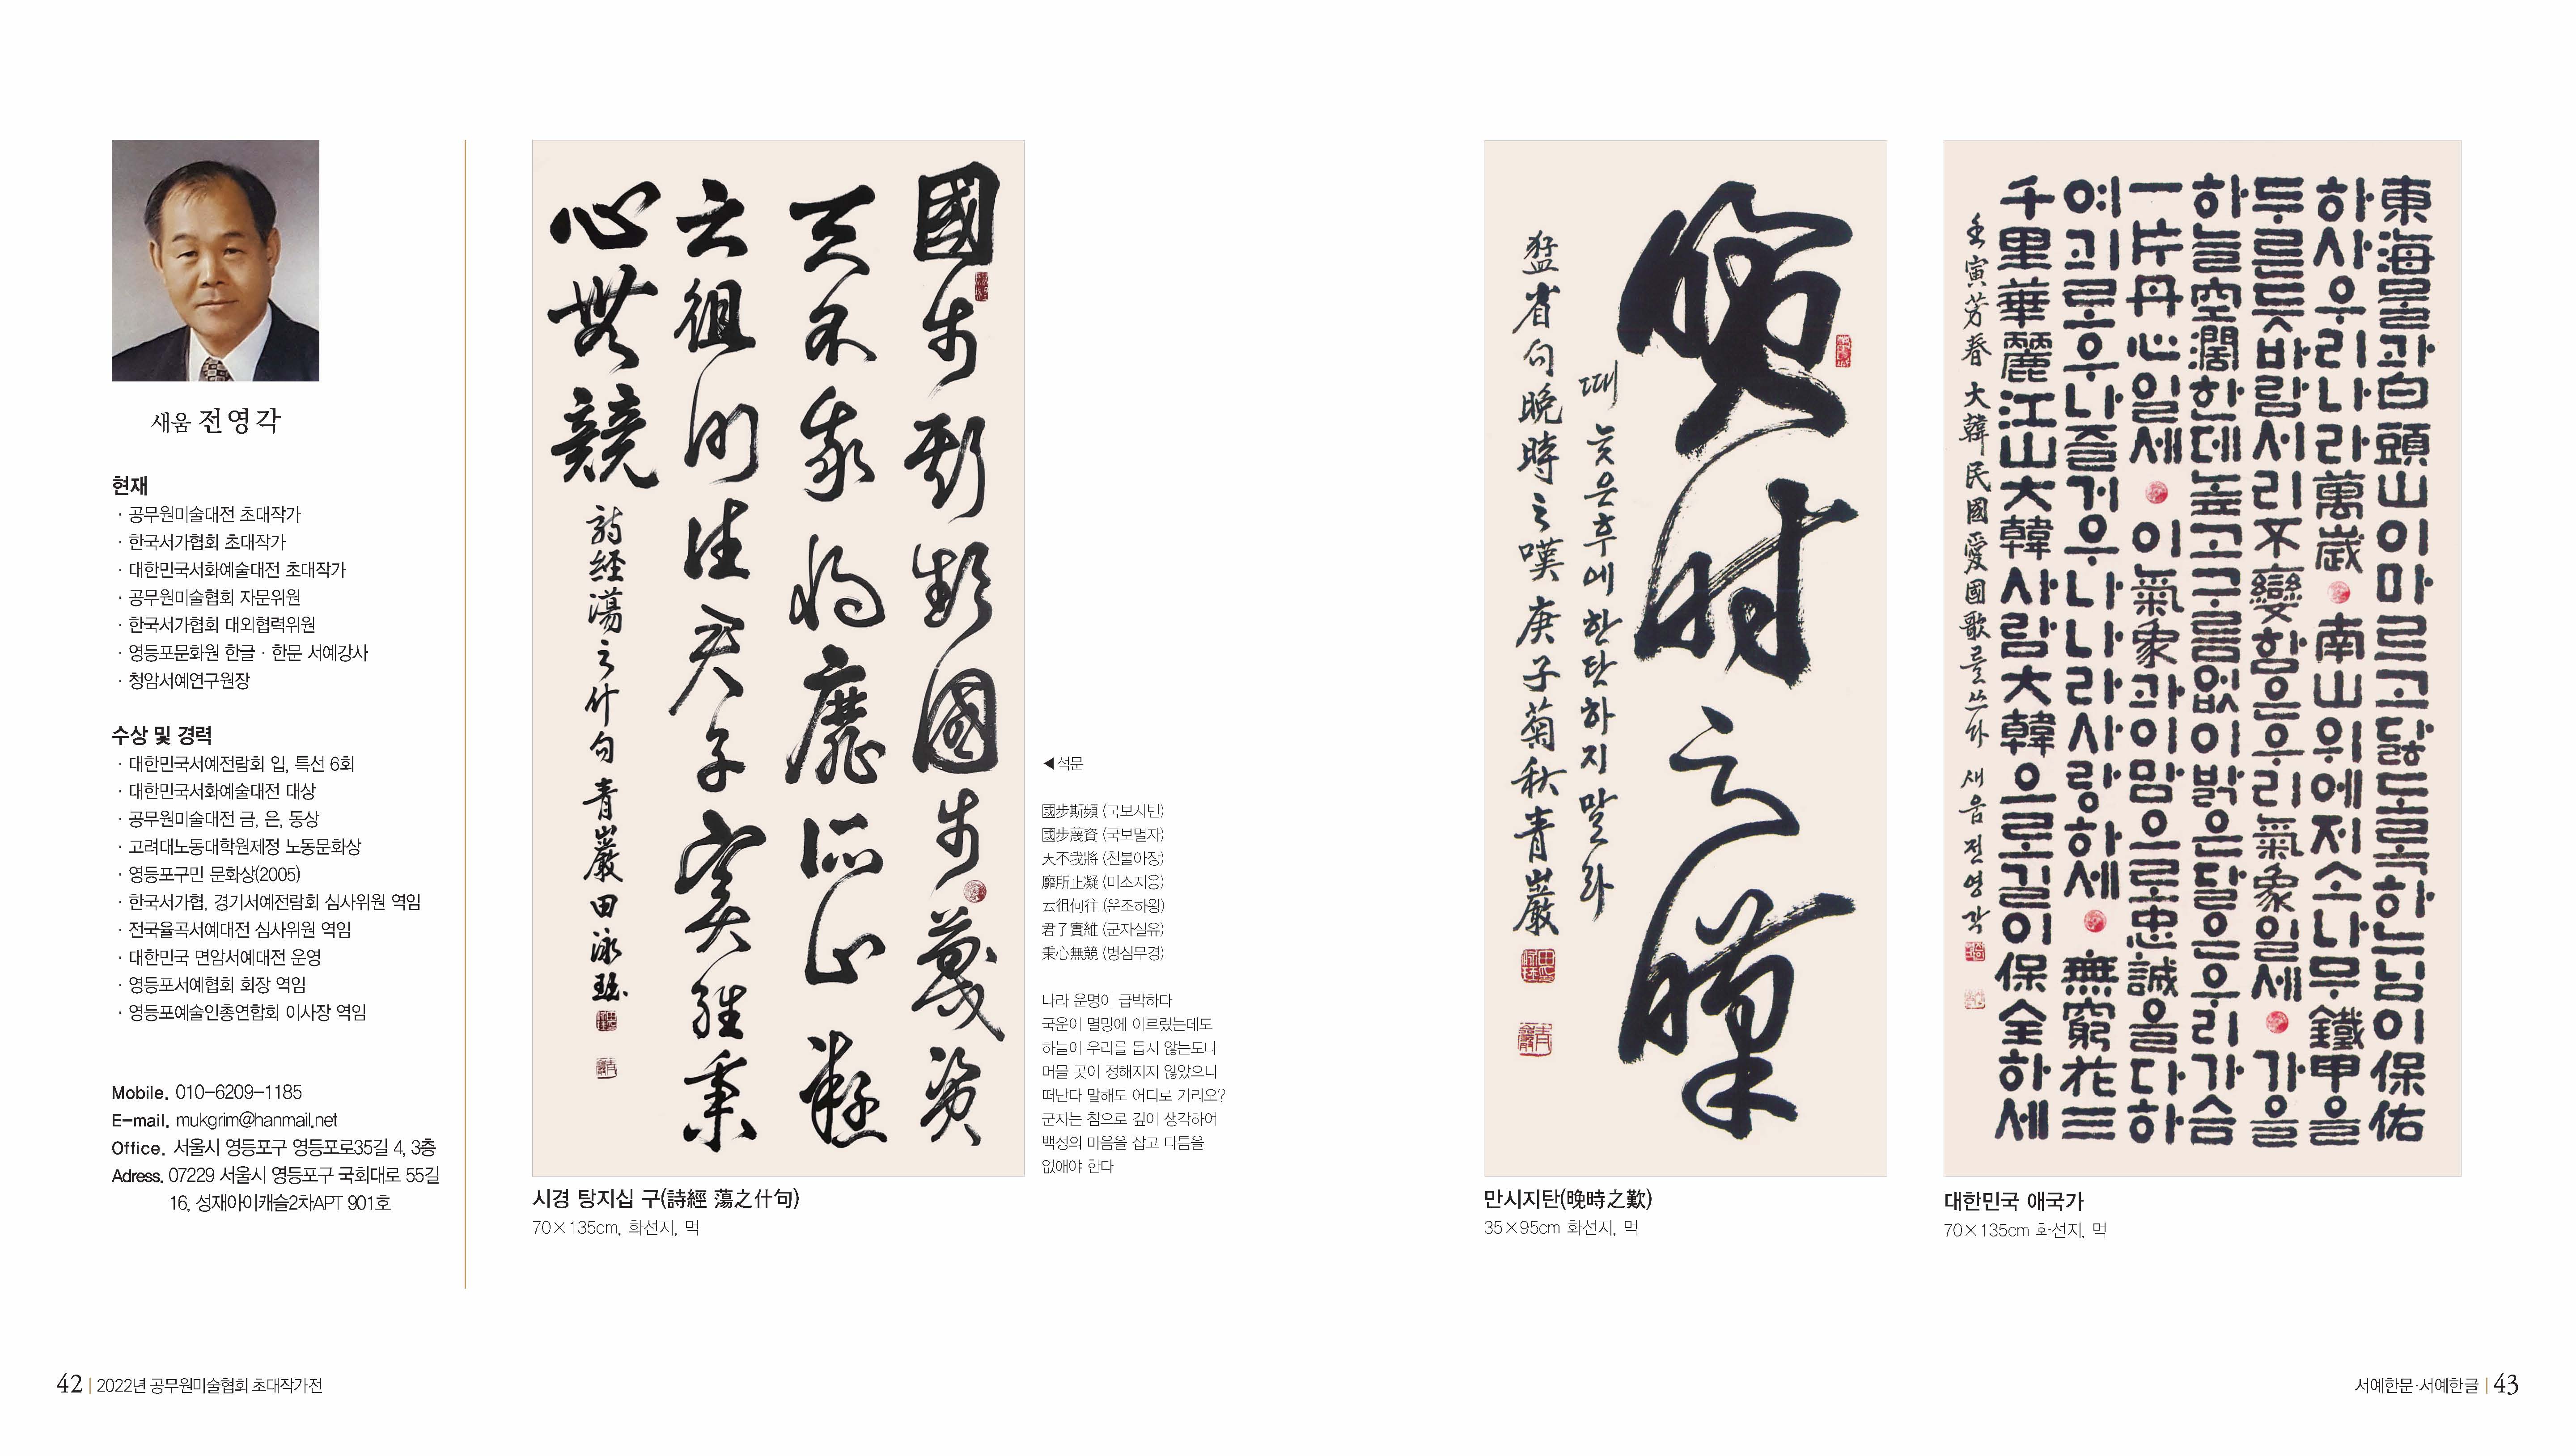 새움 전영각
현재
· 공무원미술대전 초대작가
· 한국서가협회 초대작가
· 대한민국서화예술대전 초대작가
· 공무원미술협회 자문위원
· 한국서가협회 대외협력위원
· 영등포문화원 한글 · 한문 서예강사
· 청암서예연구원장
수상 및 경력
· 대한민국서예전람회 입, 특선 6회
· 대한민국서화예술대전 대상
· 공무원미술대전 금, 은, 동상
· 고려대노동대학원제정 노동문화상
· 영등포구민 문화상(2005)
· 한국서가협, 경기서예전람회 심사위원 역임
· 전국율곡서예대전 심사위원 역임
· 대한민국 면암서예대전 운영
· 영등포서예협회 회장 역임
· 영등포예술인총연합회 이사장 역임
Mobile. 010-6209-1185
E-mail. mukgrim@hanmail.net
Office. 서울시 영등포구 영등포로35길 4, 3층
Adress. 07229 서울시 영등포구 국회대로 55길
16, 성재아이캐슬2차APT 901호
國步斯頻國步蔑資
天不我將靡所止凝
云徂何往君子實維秉
心無競
詩経蕩之什句 青巖田泳珏
시경 탕지십 구(詩經 蕩之什句)
70×135cm, 화선지, 먹
◀석문
國步斯頻 (국보사빈)
國步蔑資 (국보멸자)
天不我將 (천불아장)
靡所止凝 (미소지응)
云徂何往 (운조하왕)
君子實維 (군자실유)
秉心無競 (병심무경)
나라 운명이 급박하다
국운이 멸망에 이르렀는데도
하늘이 우리를 돕지 않는도다
머물 곳이 정해지지 않았으니
떠난다 말해도 어디로 가리오?
군자는 참으로 깊이 생각하여
백성의 마음을 잡고 다툼을
없애야 한다
晩時之嘆
때 늦은 후에 한탄하지 말라
猛省句晩時之嘆 庚子菊秋青巖
만시지탄(晚時之歎)
35×95cm 화선지, 먹
東海물과白頭山이마르고닳도록하는님이保佑
하사우리나라萬歲 南山위에저소나무鐵甲을
두른듯바람서리不變함은우리氣象일세 가을
하늘空濶한데높고구름없이밝은달은우리가슴
一片丹心일세 이氣象과이맘으로忠誠을다하
여괴로우나즐거우나나라사랑하세 無窮花三
千里華麗江山大韓사람大韓으로길이保全하세
壬寅芳春 大韓民國愛國歌를쓰다 새움 전영각
대한민국 애국가
70×135cm 화선지, 먹
42 | 2022년 공무원미술협회 초대작가전
서예한문·서예한글 | 43